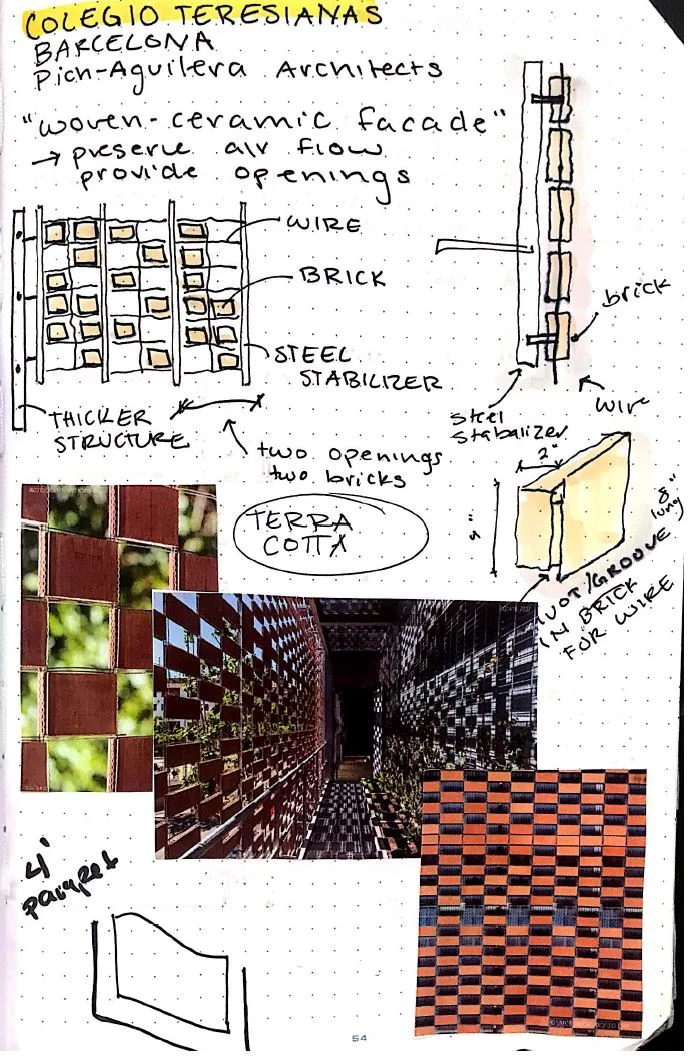 COLEGIO TERESIANAS
BARCELONA
Pich-Aguilera Architects
"woven-ceramic facade"
→ preserve air flow
provide openings
WIRE
BRICK
STEEL
STABILIZER
THICKER
STRUCTURE
two openings
two bricks
brick
wire
steel
stabalizer
2"
8"
long
TERRA
COTTA
/GROOVE
IN BRICK
FOR WIRE
4'
parapet
54